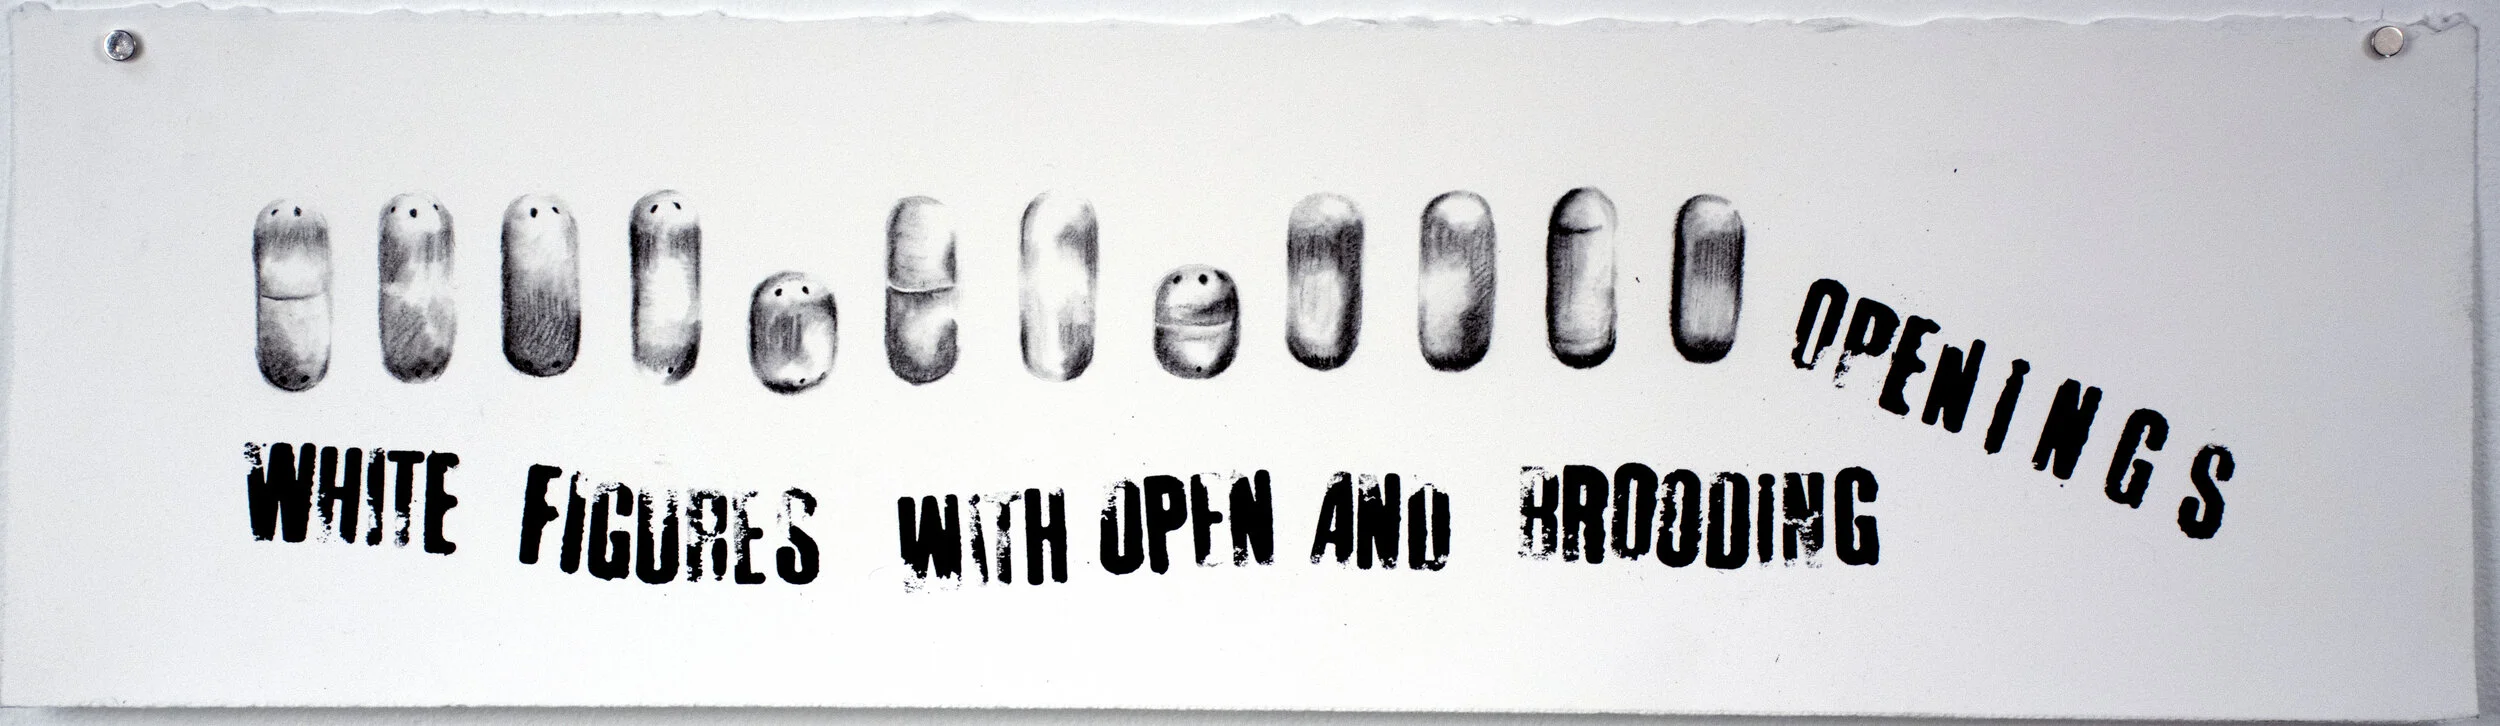 WHITE FIGURES WITH OPEN AND BROODING
OPENINGS